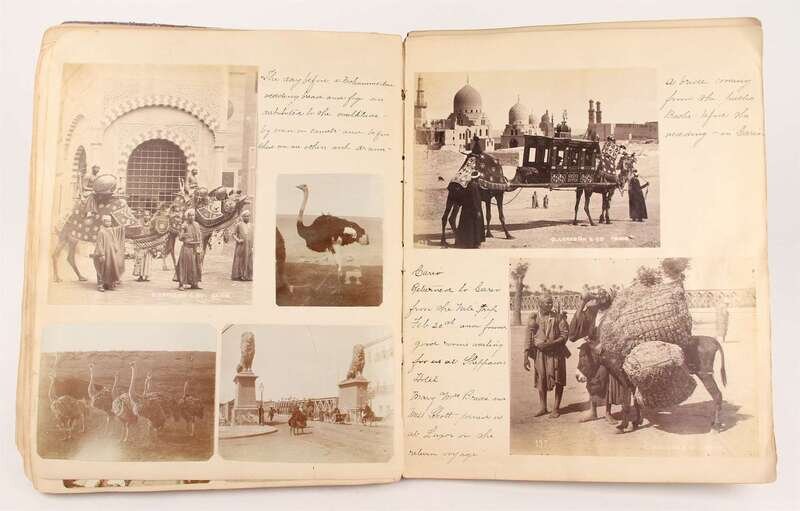 The day before a Mohammedan
wedding brass and fig on
to the
by men on camels and before
this on an other and drums
G. LEKEGIAN & CO. CAIRO
A bride coming
from the public
Baths before the
wedding - in Cairo
G. LEKEGIAN & CO CAIRO
Cairo
Returned to Cairo
from the Nile trip
Feb 20th and found
good rooms waiting
for us at Shepheards
Hotel
Mary Miss and
Miss Scott joined us
at Luxor on the
return voyage
197